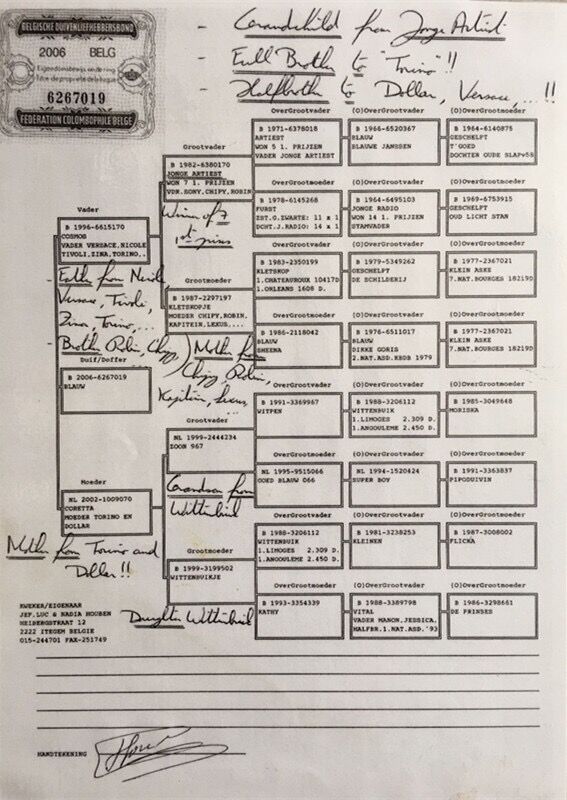 BELGISCHE DUIVENLIEFHEBBERSBOND
2006 BELG
Eigendomsbewijs van de ring
Titre de propriété de la bague
6267019
FEDERATION COLOMBOPHILE BELGE
- Grandchild from Jonge Artiest
- Full Brother to "Torino"!!
- Halfbrother to Dollar, Versace,...!!
Vader
B 1996-6615170
COSMOS
VADER VERSACE,NICOLE
TIVOLI,ZINA,TORINO..
- Father from Nicole
Versace, Tivoli,
Zina, Torino,...
- Brother Robin, Chipy
Duif/Doffer
B 2006-6267019
BLAUW
Moeder
NL 2002-1009070
CORETTA
MOEDER TORINO EN
DOLLAR
Mother from Torino and
Dollar!!
Grootvader
B 1982-6380170
JONGE ARTIEST
WON 7 1. PRIJZEN
VDR.SONY,CHIPY,ROBIN
Winner of 7
1st prizes
Grootmoeder
B 1987-2297197
KLETSKOPJE
MOEDER CHIPY,ROBIN,
KAPITEIN,LEXUS,...
Mother from
Chipy, Robin,
Kapitein, Lexus,
...
Grootvader
NL 1999-2444234
ZOON 967
Grandson from
Wittenbuik
Grootmoeder
B 1999-3199502
WITTENBUIKJE
Daughter Wittenbuik
OverGrootvader
B 1971-6378018
ARTIEST
WON 5 1. PRIJZEN
VADER JONGE ARTIEST
OverGrootmoeder
B 1978-6145268
FURST
ZST.G.ZWARTE: 11 x 1
DCHT.J.RADIO: 14 x 1
OverGrootvader
B 1983-2350199
KLETSKOP
1.CHATEAUROUX 10417D
1.ORLEANS 1608 D.
OverGrootmoeder
B 1986-2118042
BLAUW
SHEENA
OverGrootvader
B 1991-3369967
WITPEN
OverGrootmoeder
NL 1995-9515066
GOED BLAUW 066
OverGrootvader
B 1988-3206112
WITTENBUIK
1.LIMOGES 2.309 D.
1.ANGOULEME 2.450 D.
OverGrootmoeder
B 1993-3354339
KATHY
(O)OverGrootvader
B 1966-6520367
BLAUW
BLAUWE JANSSEN
(O)OverGrootvader
B 1964-6495103
JONGE RADIO
WON 14 1. PRIJZEN
STAMVADER
(O)OverGrootvader
B 1979-5349262
GESCHELPT
DE SCHILDERIJ
(O)OverGrootvader
B 1976-6511017
BLAUW
DIKKE GORIS
2.NAT.ASD.KBDB 1979
(O)OverGrootvader
B 1988-3206112
WITTENBUIK
1.LIMOGES 2.309 D.
1.ANGOULEME 2.450 D.
(O)OverGrootvader
NL 1994-1520424
SUPER BOY
(O)OverGrootvader
B 1981-3238253
KLEINEN
(O)OverGrootvader
B 1988-3389798
VITAL
VADER MANON,JESSICA,
HALFBR.1.NAT.ASD.'93
(O)OverGrootmoeder
B 1964-6140875
GESCHELPT
T'GOED
DOCHTER OUDE SLAPv55
(O)OverGrootmoeder
B 1969-6753915
GESCHELPT
OUD LICHT STAN
(O)OverGrootmoeder
B 1977-2367021
KLEIN ASKE
7.NAT.BOURGES 18219D
(O)OverGrootmoeder
B 1977-2367021
KLEIN ASKE
7.NAT.BOURGES 18219D
(O)OverGrootmoeder
B 1985-3049648
MORISKA
(O)OverGrootmoeder
B 1991-3363837
PIPODUIVIN
(O)OverGrootmoeder
B 1987-3008002
FLICKA
(O)OverGrootmoeder
B 1986-3298661
DE PRINSES
KWEKER/EIGENAAR
JEF,LUC & NADIA HOUBEN
HEIBERGSTRAAT 12
2222 ITEGEM BELGIE
015-244701 FAX-251749
HANDTEKENING